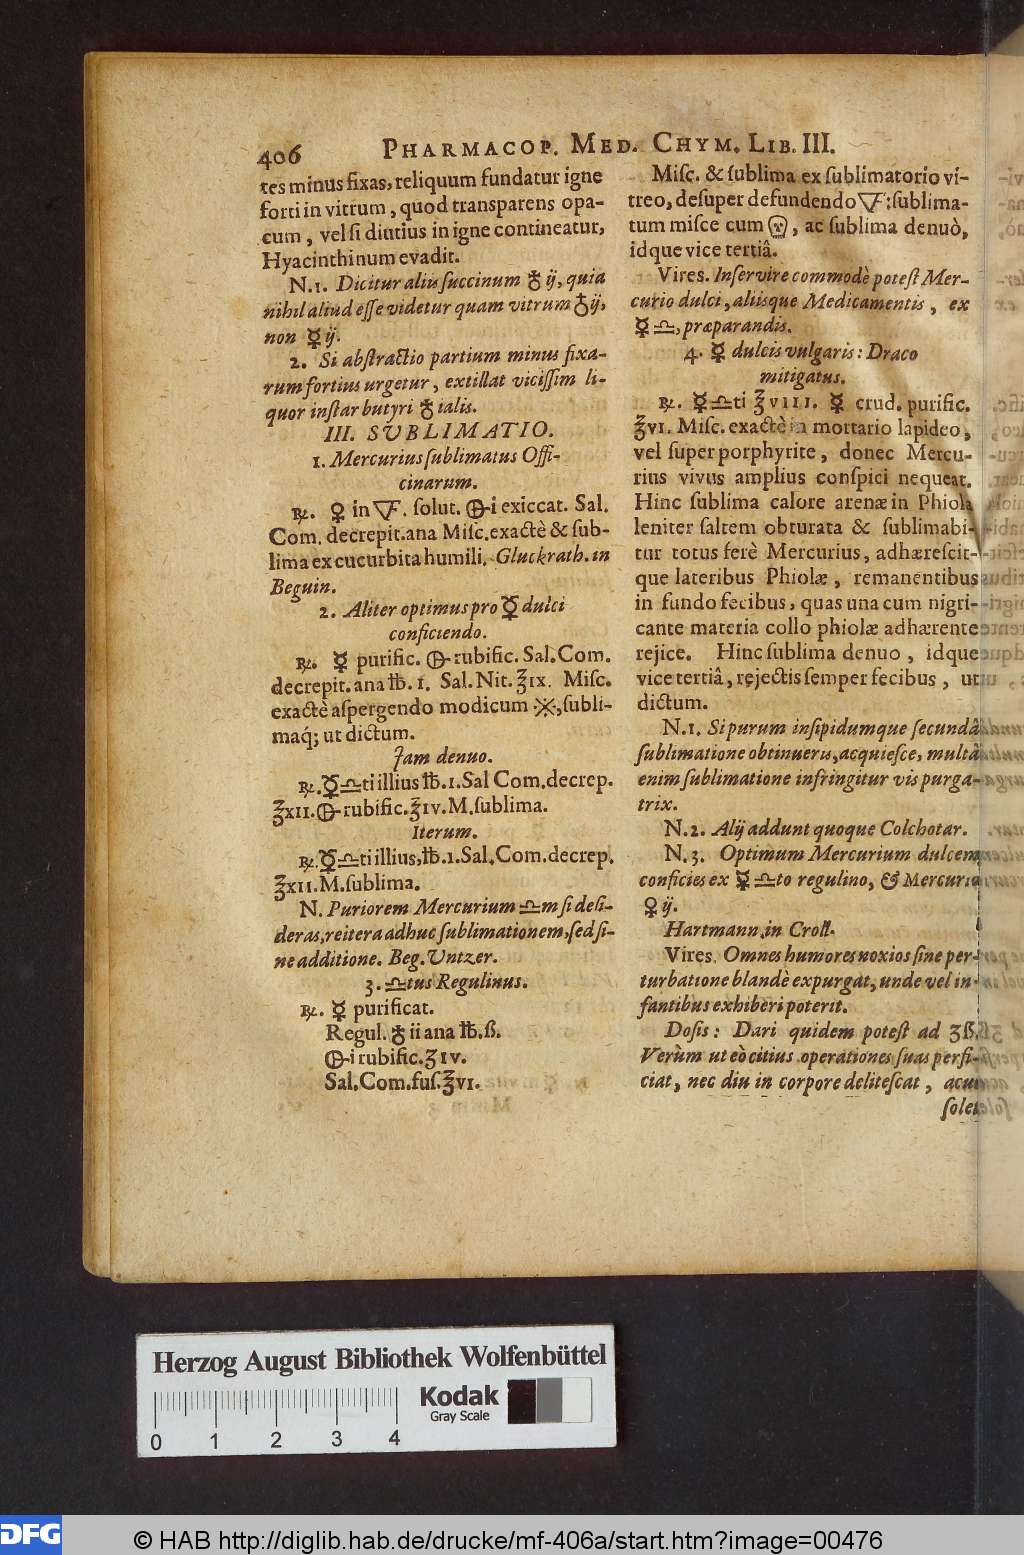 406 PHARMACOP. MED. CHYM. LIB. III.
tes minus fixas, reliquum fundatur igne
forti in vitrum, quod transparens opa-
cum, vel si diutius in igne contineatur,
Hyacinthinum evadit.
N. 1. Dicitur aliis succinum ♁ ij, quia
nihil aliud esse videtur quam vitrum ♁ ij,
non ☿ ij.
2. Si abstractio partium minus fixa-
rum fortius urgetur, extillat vicissim li-
quor instar butyri ♁ ialis.
III. SUBLIMATIO.
1. Mercurius sublimatus Offi-
cinarum.
℞. ☿ in 🜅. solut. 🜖-i exiccat. Sal.
Com. decrepit. ana Misc. exactè & sub-
lima ex cucurbita humili. Gluckrath. in
Beguin.
2. Aliter optimus pro ☿ dulci
conficiendo.
℞. ☿ purific. 🜖-rubific. Sal. Com.
decrepit. ana ℔. 1. Sal. Nit. ℥ıx. Misc.
exactè aspergendo modicum ※, subli-
maq; ut dictum.
Jam denuo.
℞. ☿♎ti illius ℔. 1. Sal Com. decrep.
℥xıı. 🜖-rubific. ℥ıv. M. sublima.
Iterum.
℞. ☿♎ti illius, ℔. 1. Sal. Com. decrep.
℥xıı. M. sublima.
N. Puriorem Mercurium ♎m si desi-
deras, reitera adhuc sublimationem, sed si-
ne additione. Beg. Untzer.
3. ♎tus Regulinus.
℞. ☿ purificat.
Regul. ♁ ii ana ℔. ß.
🜖-i rubific. ℥ıv.
Sal. Com. fus. ℥vı.
Misc. & sublima ex sublimatorio vi-
treo, desuper defundendo 🜅; sublima-
tum misce cum 💀, ac sublima denuò,
idque vice tertiâ.
Vires. Inservire commodè potest Mer-
curio dulci, aliisque Medicamentis, ex
☿ ♎, præparandis.
4. ☿ dulcis vulgaris: Draco
mitigatus.
℞. ☿♎ti ℥vııı. ☿ crud. purific.
℥vı. Misc. exactè in mortario lapideo,
vel super porphyrite, donec Mercu-
rius vivus amplius conspici nequeat.
Hinc sublima calore arenæ in Phiola
leniter saltem obturata & sublimabi-
tur totus ferè Mercurius, adhærescit-
que lateribus Phiolæ, remanentibus
in fundo fecibus, quas una cum nigri-
cante materia collo phiolæ adhærente
rejice. Hinc sublima denuo, idque
vice tertiâ, rejectis semper fecibus, ut
dictum.
N. 1. Si purum insipidumque secundâ
sublimatione obtinueris, acquiesce, multâ
enim sublimatione infringitur vis purga-
trix.
N. 2. Alij addunt quoque Colchotar.
N. 3. Optimum Mercurium dulcem
conficies ex ☿ ♎to regulino, & Mercurio
♀ ij.
Hartmann. in Croll.
Vires. Omnes humores noxios sine per-
turbatione blandè expurgat, unde vel in-
fantibus exhiberi poterit.
Dosis: Dari quidem potest ad ʒß.
Verùm ut eò citius operationes suas perfi-
ciat, nec diu in corpore delitescat, acui
solet
Herzog August Bibliothek Wolfenbüttel
Kodak
Gray Scale
0 1 2 3 4
DFG © HAB http://diglib.hab.de/drucke/mf-406a/start.htm?image=00476